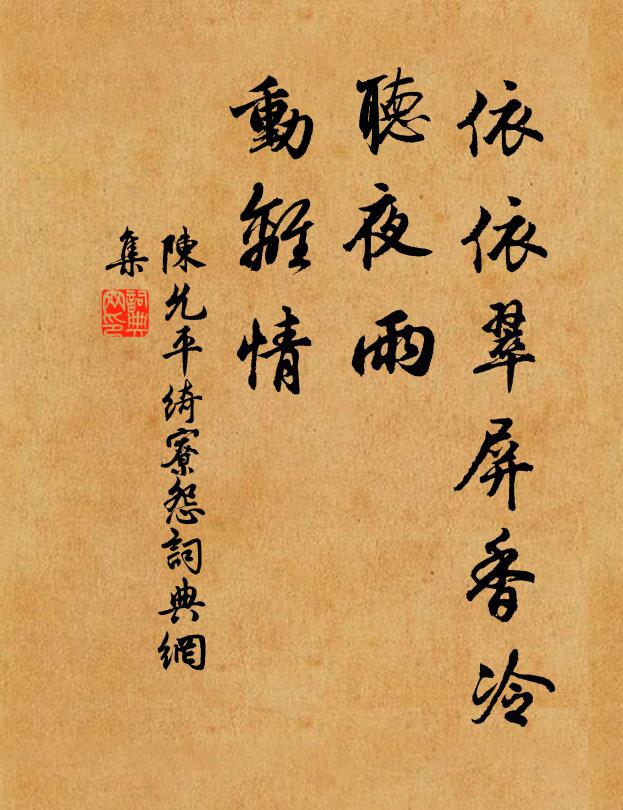 依依翠屏香冷
聽夜雨
動離情
陳允平綺寮怨詞典網
集
詞典
网印